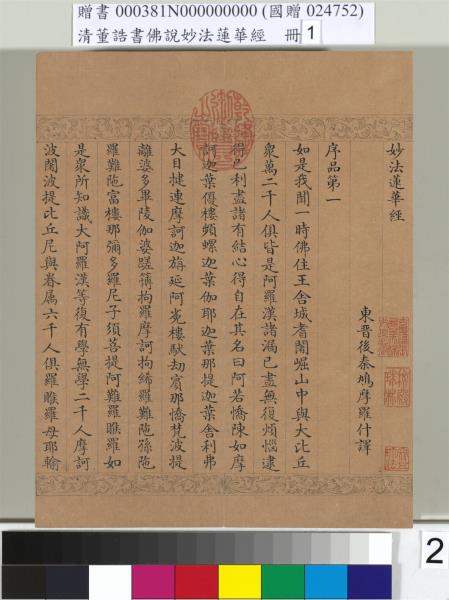 贈書 000381N000000000 (國贈 024752)
清董誥書佛說妙法蓮華經 冊 1
妙法蓮華經
東晉後秦鳩摩羅什譯
序品第一
如是我聞一時佛住王舍城耆闍崛山中與大比丘
衆萬二千人俱皆是阿羅漢諸漏已盡無復煩惱逮
得己利盡諸有結心得自在其名曰阿若憍陳如摩
訶迦葉優樓頻螺迦葉伽耶迦葉那提迦葉舍利弗
大目揵連摩訶迦旃延阿㝹樓馱劫賓那憍梵波提
離婆多畢陵伽婆蹉薄拘羅摩訶拘絺羅難陁孫陁
羅難陁富樓那彌多羅尼子須菩提阿難羅睺羅如
是衆所知識大阿羅漢等復有學無學二千人摩訶
波闍波提比丘尼與眷屬六千人俱羅睺羅母耶輸
2